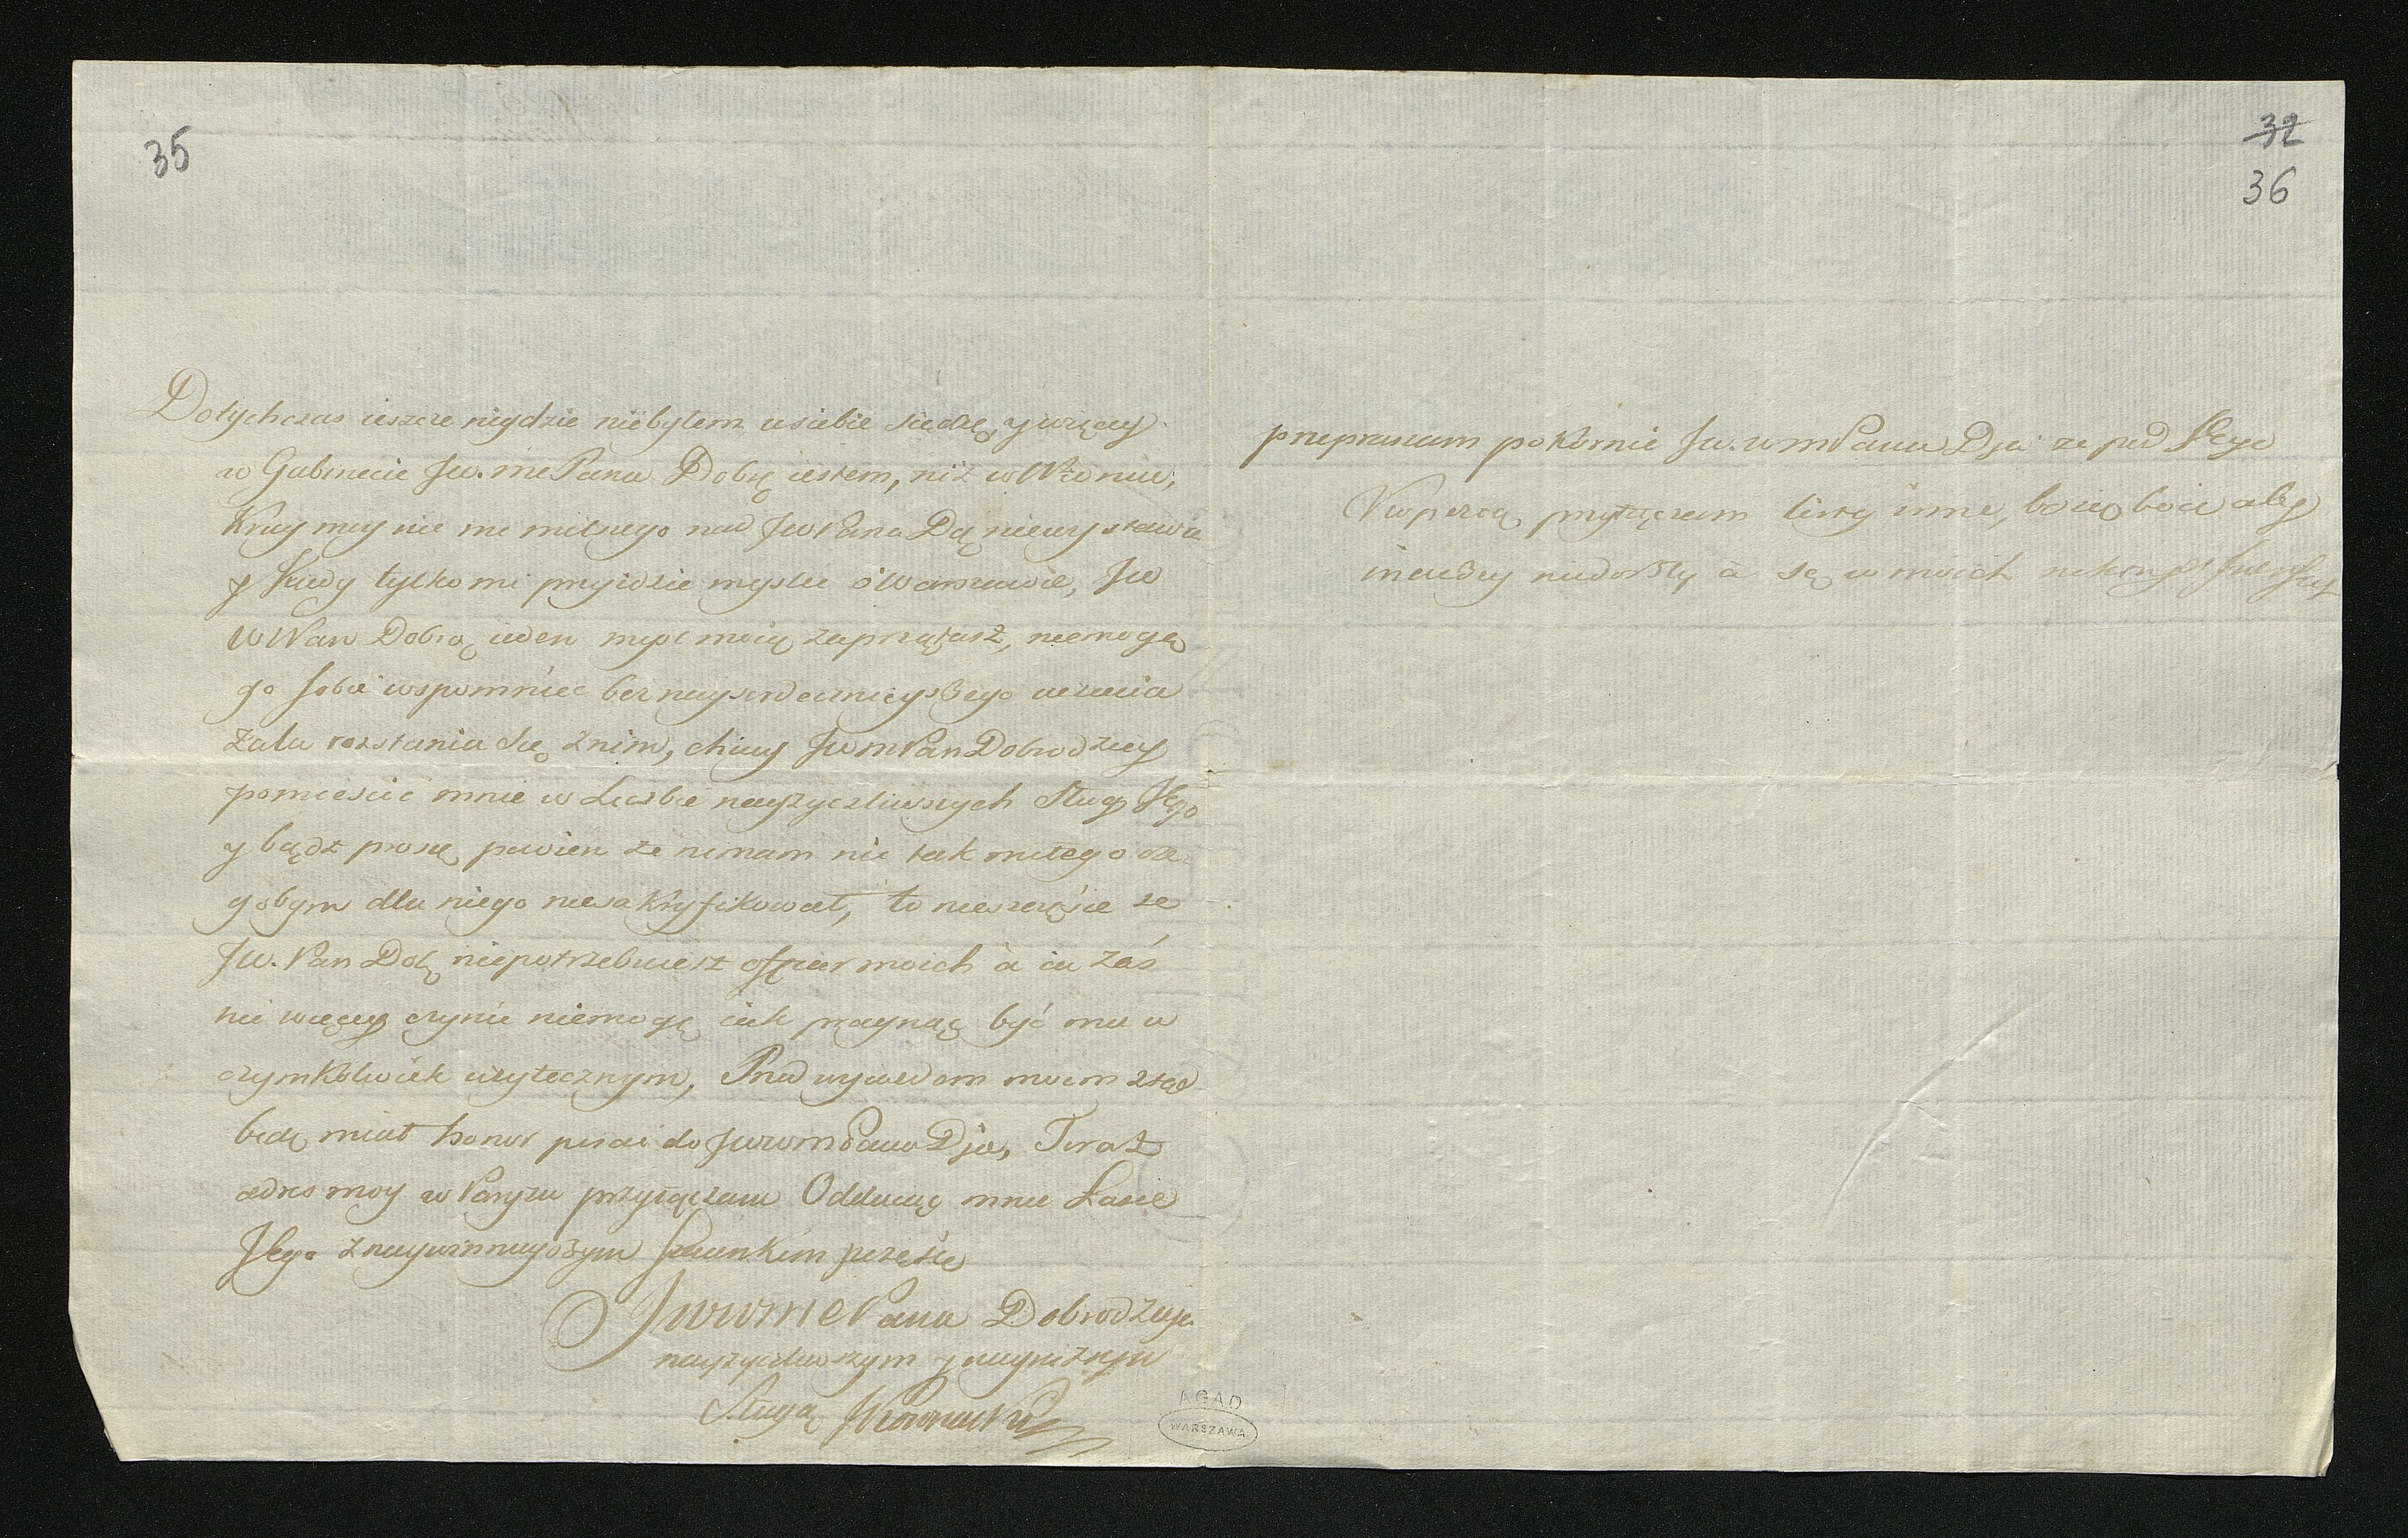 35
Dotychczas ieszcze nigdzie niebyłem, u siebie siedzę, y więcey
w Gabinecie Jw. me Pana Dobrę iestem, niż w
Kray moy nic me milszego nad Jw Pana Dą niewystawia
y kiedy tylko mi przyidzie myslec o Warszawie, Jw
W Pan Dobrą ieden mysl moią zaprzątasz, niemogę
go sobie wspomniec bez nayserdecznieyszego uczucia
żalu rozstania się znim, chciey JwmPan Dobrodziey
pomiescić mnie w Liczbie nayzyczliwszych Sług Jego
y bądz proszę pewien ze niemam nic tak miłego cze-
gobym dla niego niesakryfikował, to nieszczęście ze
Jw. Pan Dobę niepotrzebuiesz ofiar moich à ia zaś
nic więcey czynic niemogę iak pragnąc być mu w
czymkolwiek użytecznym, Przed wyiazdem moim ztąd
będę miał honor pisać do JwwmPana Dja, Teraz
adres moy w Paryzu przyłączam Oddaiąc mnie Łasce
Jego z naywinnieyszym szacunkiem piszę się
JwwmePana Dobrodzieja
nayzyczliwszym y naynizszym
Sługą
AGAD
WARSZAWA
32
36
przepraszam pokornie Jw. wmPana Dja ze pod Jego
Kopertą przyłączam listy inne, bo się boię aby
inaczey niedoszły a są w moich